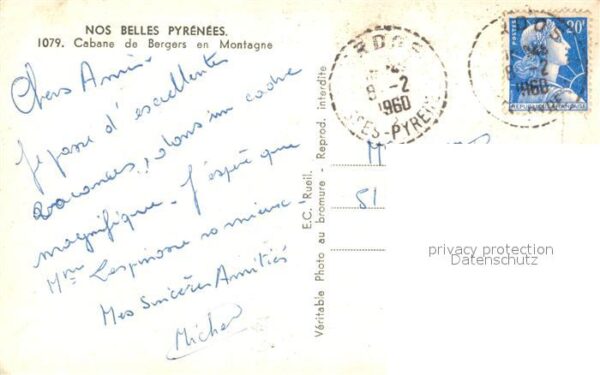 NOS BELLES PYRÉNÉES.
1079. Cabane de Bergers en Montagne
Chers Amis
Je passe d'excellentes
vacances, dans un cadre
magnifique - J'espère que
Mme Lespinasse va mieux -
Mes Sincères Amitiés
Michel
E.C. Rueil.
Véritable Photo au bromure - Reprod. interdite
8 -2
1960
SES-PYRÉN
POSTES
20F
REPUBLIQUE FRANÇAISE
-2
1960
M
51
privacy protection
Datenschutz